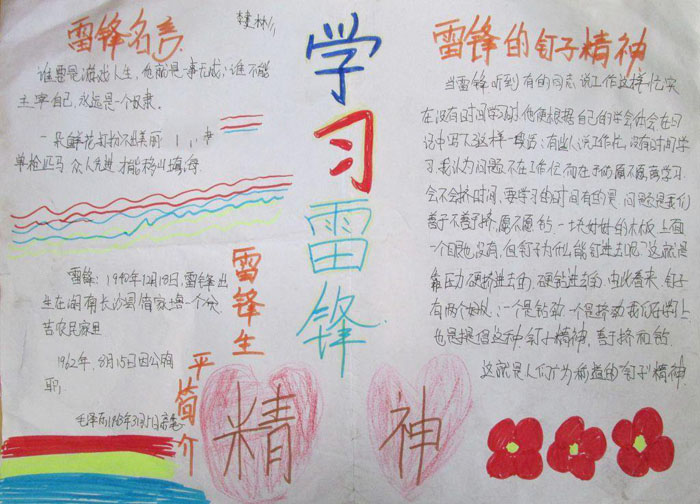 雷锋名言
谁要是游戏人生,他就是一事无成;谁不能
主宰自己,永远是一个奴隶。
一朵鲜花打扮不出美丽
单枪匹马,众人先进才能移山填海
学习雷锋
精神
雷锋生
平简介
雷锋:1940年12月18日,雷锋出
生在湖南长沙
苦农民家里
1962年,8月15日因公殉
职,
毛泽东1963年3月5日
雷锋的钉子精神
当雷锋听到有的同志说工作这样忙实
在没有时间学习时他便根据自己的学会体会在日
记中写下这样一段话:有些人说工作忙,没有时间学
习,我认为问题不在工作忙而在于你愿不愿意学习
会不会挤时间,要学习的时间有的是,问题是我们
善于不善于挤,愿不愿钻,一块好好的木板,上面
一个眼也没有,但钉子为什么能钉进去呢?这就是
靠压力硬挤进去的,硬钻进去的,由此看来,钉子
有两个好处:一个是钻劲,一个是挤劲我们在学习上
也是提倡这种"钉子"精神,善于挤和钻
这就是人们广为称道的"钉子"精神